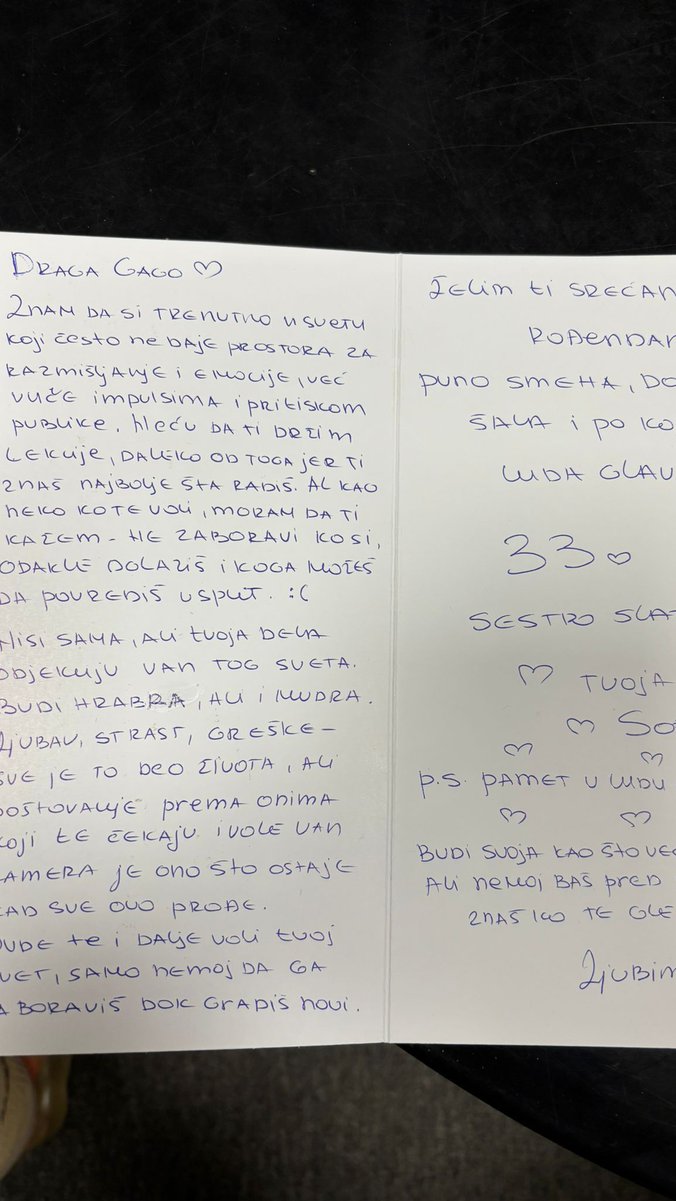 DRAGA GAGO ♡
ZNAM DA SI TRENUTNO U SVETU
KOJI ČESTO NE DAJE PROSTORA ZA
RAZMIŠLJANJE I EMOCIJE, VEĆ
VUČE IMPULSIMA I PRITISKOM
PUBLIKE. NEĆU DA TI DRŽIM
LEKCIJE, DALEKO OD TOGA JER TI
ZNAŠ NAJBOLJE ŠTA RADIŠ. AL KAO
NEKO KO TE VOLI, MORAM DA TI
KAŽEM - NE ZABORAVI KO SI,
ODAKLE DOLAZIŠ I KOGA MOŽEŠ
DA POVREDIŠ USPUT. :(
NISI SAMA, ALI TVOJA DELA
ODJEKUJU VAN TOG SVETA.
BUDI HRABRA, ALI I MUDRA.
LJUBAV, STRAST, GREŠKE -
SVE JE TO DEO ŽIVOTA, ALI
POŠTOVANJE PREMA ONIMA
KOJI TE ČEKAJU I VOLE VAN
KAMERA JE ONO ŠTO OSTAJE
KAD SVE OVO PROĐE.
UDE TE I DALJE VOLI TVOJ
VET, SAMO NEMOJ DA GA
ABORAVIŠ DOK GRADIŠ NOVI.
ŽELIM TI SREĆAN
ROĐENDAN
PUNO SMEHA, DO
ŠALA I PO KO
LUDA GLAV
33 ♡
SESTRO SLA
♡ TVOJA
♡ SO
♡ ♡
P.S. PAMET U LUDU
♡ ♡
BUDI SVOJA KAO ŠTO VEĆ
ALI NEMOJ BAŠ PRED
ZNAŠ KO TE GLE
LJUBIM